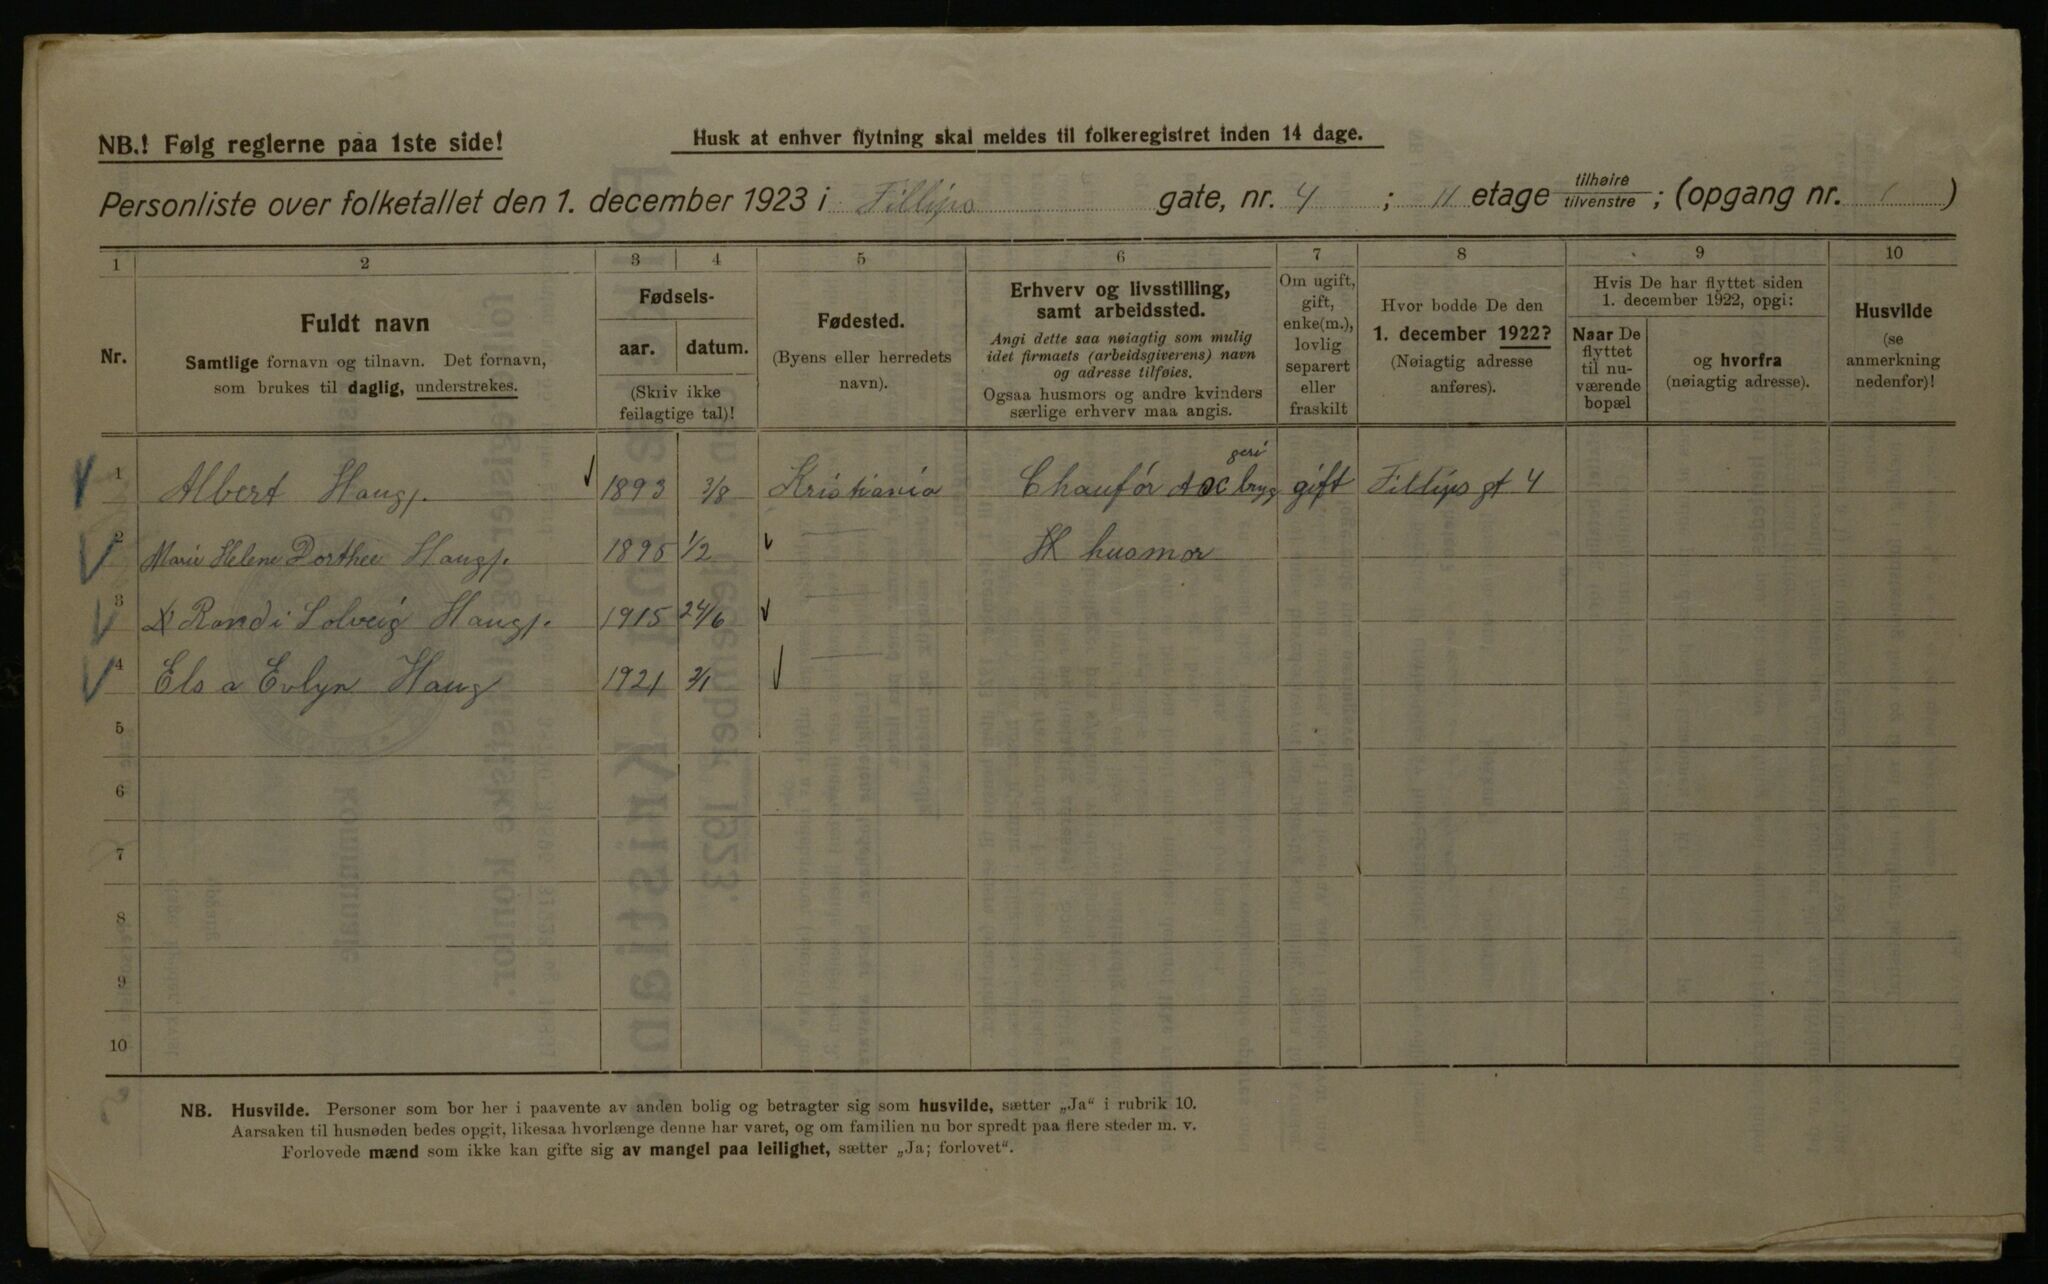 NB.! Følg reglerne paa 1ste side!
Husk at enhver flytning skal meldes til folkeregistret inden 14 dage.
Personliste over folketallet den 1. december 1923 i Fillips gate, nr. 4 ; II etage tilhøire/tilvenstre ; (opgang nr. 1 )
1 2 3 4 5 6 7 8 9 10
Nr.
Fuldt navn
Samtlige fornavn og tilnavn. Det fornavn,
som brukes til daglig, understrekes.
Fødsels-
aar. datum.
(Skriv ikke
feilagtige tal)!
Fødested.
(Byens eller herredets
navn).
Erhverv og livsstilling,
samt arbeidssted.
Angi dette saa nøiagtig som mulig
idet firmaets (arbeidsgiverens) navn
og adresse tilføies.
Ogsaa husmors og andre kvinders
særlige erhverv maa angis.
Om ugift,
gift,
enke(m.),
lovlig
separert
eller
fraskilt
Hvor bodde De den
1. december 1922?
(Nøiagtig adresse
anføres).
Hvis De har flyttet siden
1. december 1922, opgi:
Naar De
flyttet
til nu-
værende
bopæl
og hvorfra
(nøiagtig adresse).
Husvilde
(se
anmerkning
nedenfor)!
1 Albert Haug 1893 3/8 Kristiania Chauför bryggeri gift Fillips gt 4
2 Marie Helene Dorthee Haug 1895 1/2 — husmor
3 Randi Solveig Haug 1915 24/6 —
4 Elsa Evlyn Haug 1921 3/1 —
5
6
7
8
9
10
NB. Husvilde. Personer som bor her i paavente av anden bolig og betragter sig som husvilde, sætter „Ja“ i rubrik 10.
Aarsaken til husnøden bedes opgit, likesaa hvorlænge denne har varet, og om familien nu bor spredt paa flere steder m. v.
Forlovede mænd som ikke kan gifte sig av mangel paa leilighet, sætter „Ja; forlovet“.